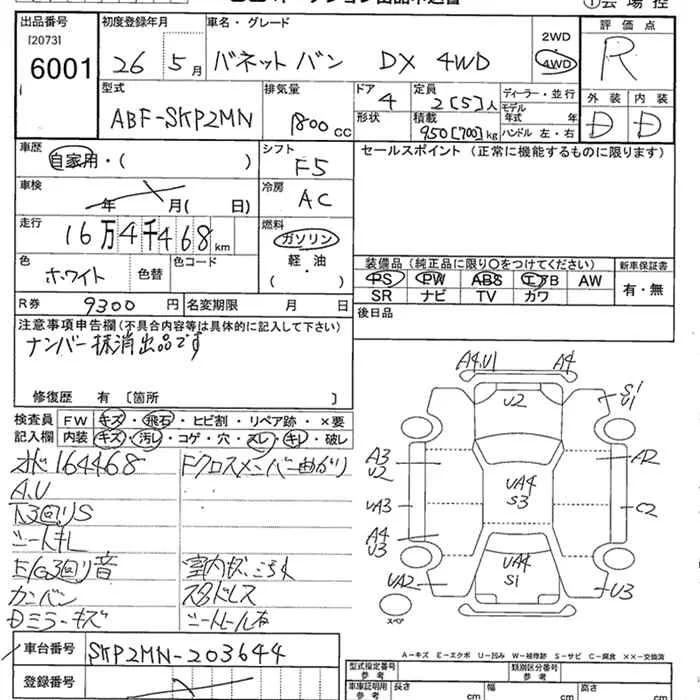 出品番号 初度登録年月 車名・グレード 2WD 評価点
[2073] 6001 26年 5月 バネットバン DX 4WD 4WD R
型式 排気量 ドア 定員 ディーラー・並行 外装 内装
ABF-SKP2MN 1800 cc 4 2[5]人 モデル年式 年 D D
形状 積載 950[700]kg ハンドル 左・右
車歴 シフト セールスポイント (正常に機能するものに限ります)
自家用・( ) F5
車検 冷房
年 月( 日) AC
走行 燃料
16万4千468km ガソリン
色 色替 色コード 軽・油 装備品 (純正品に限り○をつけてください) 新車保証書
ホワイト ( ) PS PW ABS エアB AW 有・無
SR ナビ TV カワ
R券 9300円 名変期限 月 日 後日品
注意事項申告欄(不具合内容等は具体的に記入して下さい)
ナンバー抹消出品です
修復歴 有 [箇所 ]
検査員 FW キズ・飛石・ヒビ割・リペア跡・×要
記入欄 内装 キズ・汚レ・コゲ・穴・スレ・キレ・破レ
オドメ164468 Fクロスメンバー曲がり
A.U
下3回りS
シートキレ
E/G3回り音 室内キズ、ヨゴレ
カンバン スタドレス
Dミラーキズ シートレール有
A4.U1 A4
U2 S1 U1
A3 U2 A2
UA4 S3
UA3 C2
A4 U3
UA4 S1
UA2 U3
スペア
A-キズ E-エクボ U-凹み W-補修跡 S-サビ C-腐食 ××-交換済
車台番号 SKP2MN-203644
登録番号
型式指定番号 参考 類別区分番号 参考
車庫証明用 参考 長さ cm 幅 cm 高さ cm